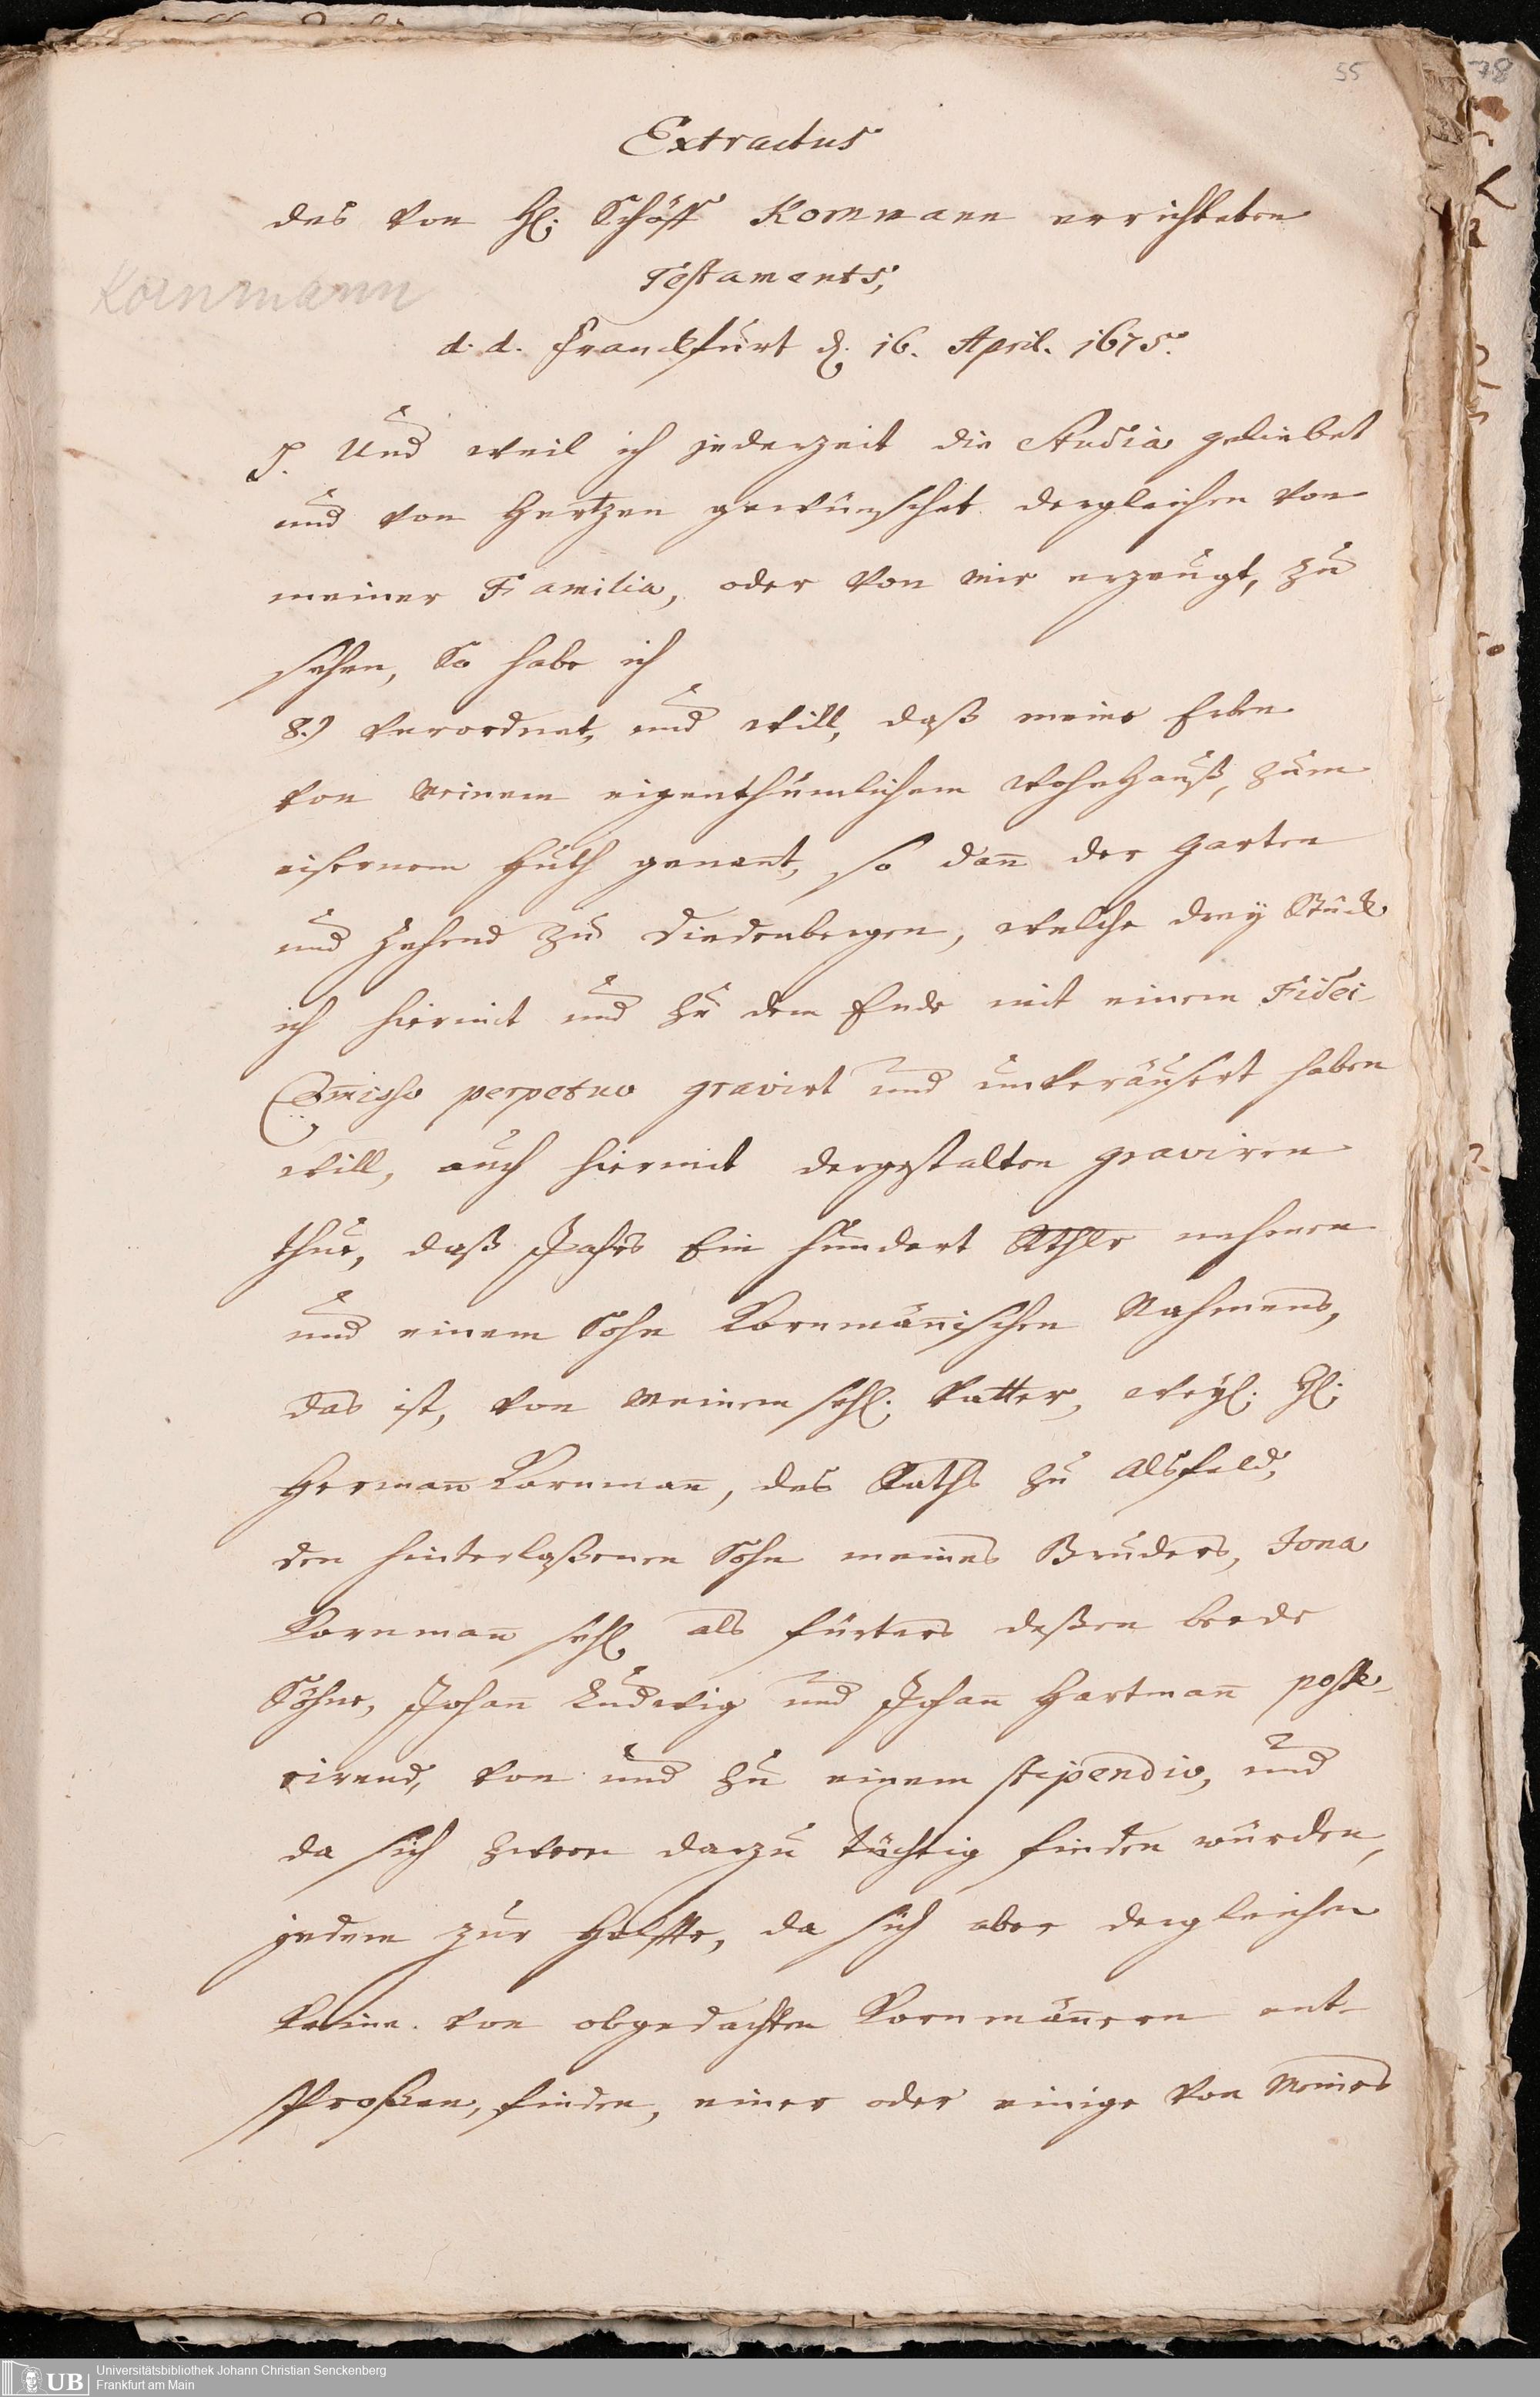 55
78
Extractus
des von H: Schöff Kornmann errichteten
Testaments,
Kornmann
d. d. Franckfurt d. 16. April. 1675.
P. Und weil ich jederzeit die Studia geliebet
und von Hertzen gewünschet dergleichen von
meiner Familia, oder von mir erzeugt, zu
sehen, So habe ich
8.) verordnet, und will, daß meine Erben
von meinem eigenthümlichem Wohnhauß, zum
eisernem Huth genant, so dañ der Garten
und Zehend zu Diedenbergen, welche drey Stück
ich hiermit und zu dem Ende mit einem Fidei
Com̃isso perpetuo gravirt und unveräusert haben
will, auch hiermit dergestalten graviren
thue, daß Jahrs Ein hundert Rthlr nehmen
und einem Sohn Kornmäñischen Nahmens,
das ist, von meinem sehl: Vatter, weyl: H:
Hermañ Kornmañ, des Raths zu Alsfeld,
den hinterlaßenen Sohn meines Bruders, Jona
Kornmañ sehl als fürters deßen beede
Söhne, Johañ Ludewig und Johañ Hartmañ poste-
rirend, von und zu einem stipendio, und
da sich zween darzu tüchtig finden würden,
jedem zur Helffte, da sich aber dergleichen
keine von obgedachten Kornmäñern ent-
sproßen, finden, einer oder einige von meines
Universitätsbibliothek Johann Christian Senckenberg
Frankfurt am Main
UB